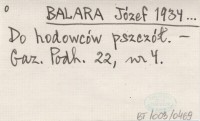 BALARA Józef 1934...
Do hodowców pszczół. –
Gaz. Podh. 22, nr 4.
BT/008/0469